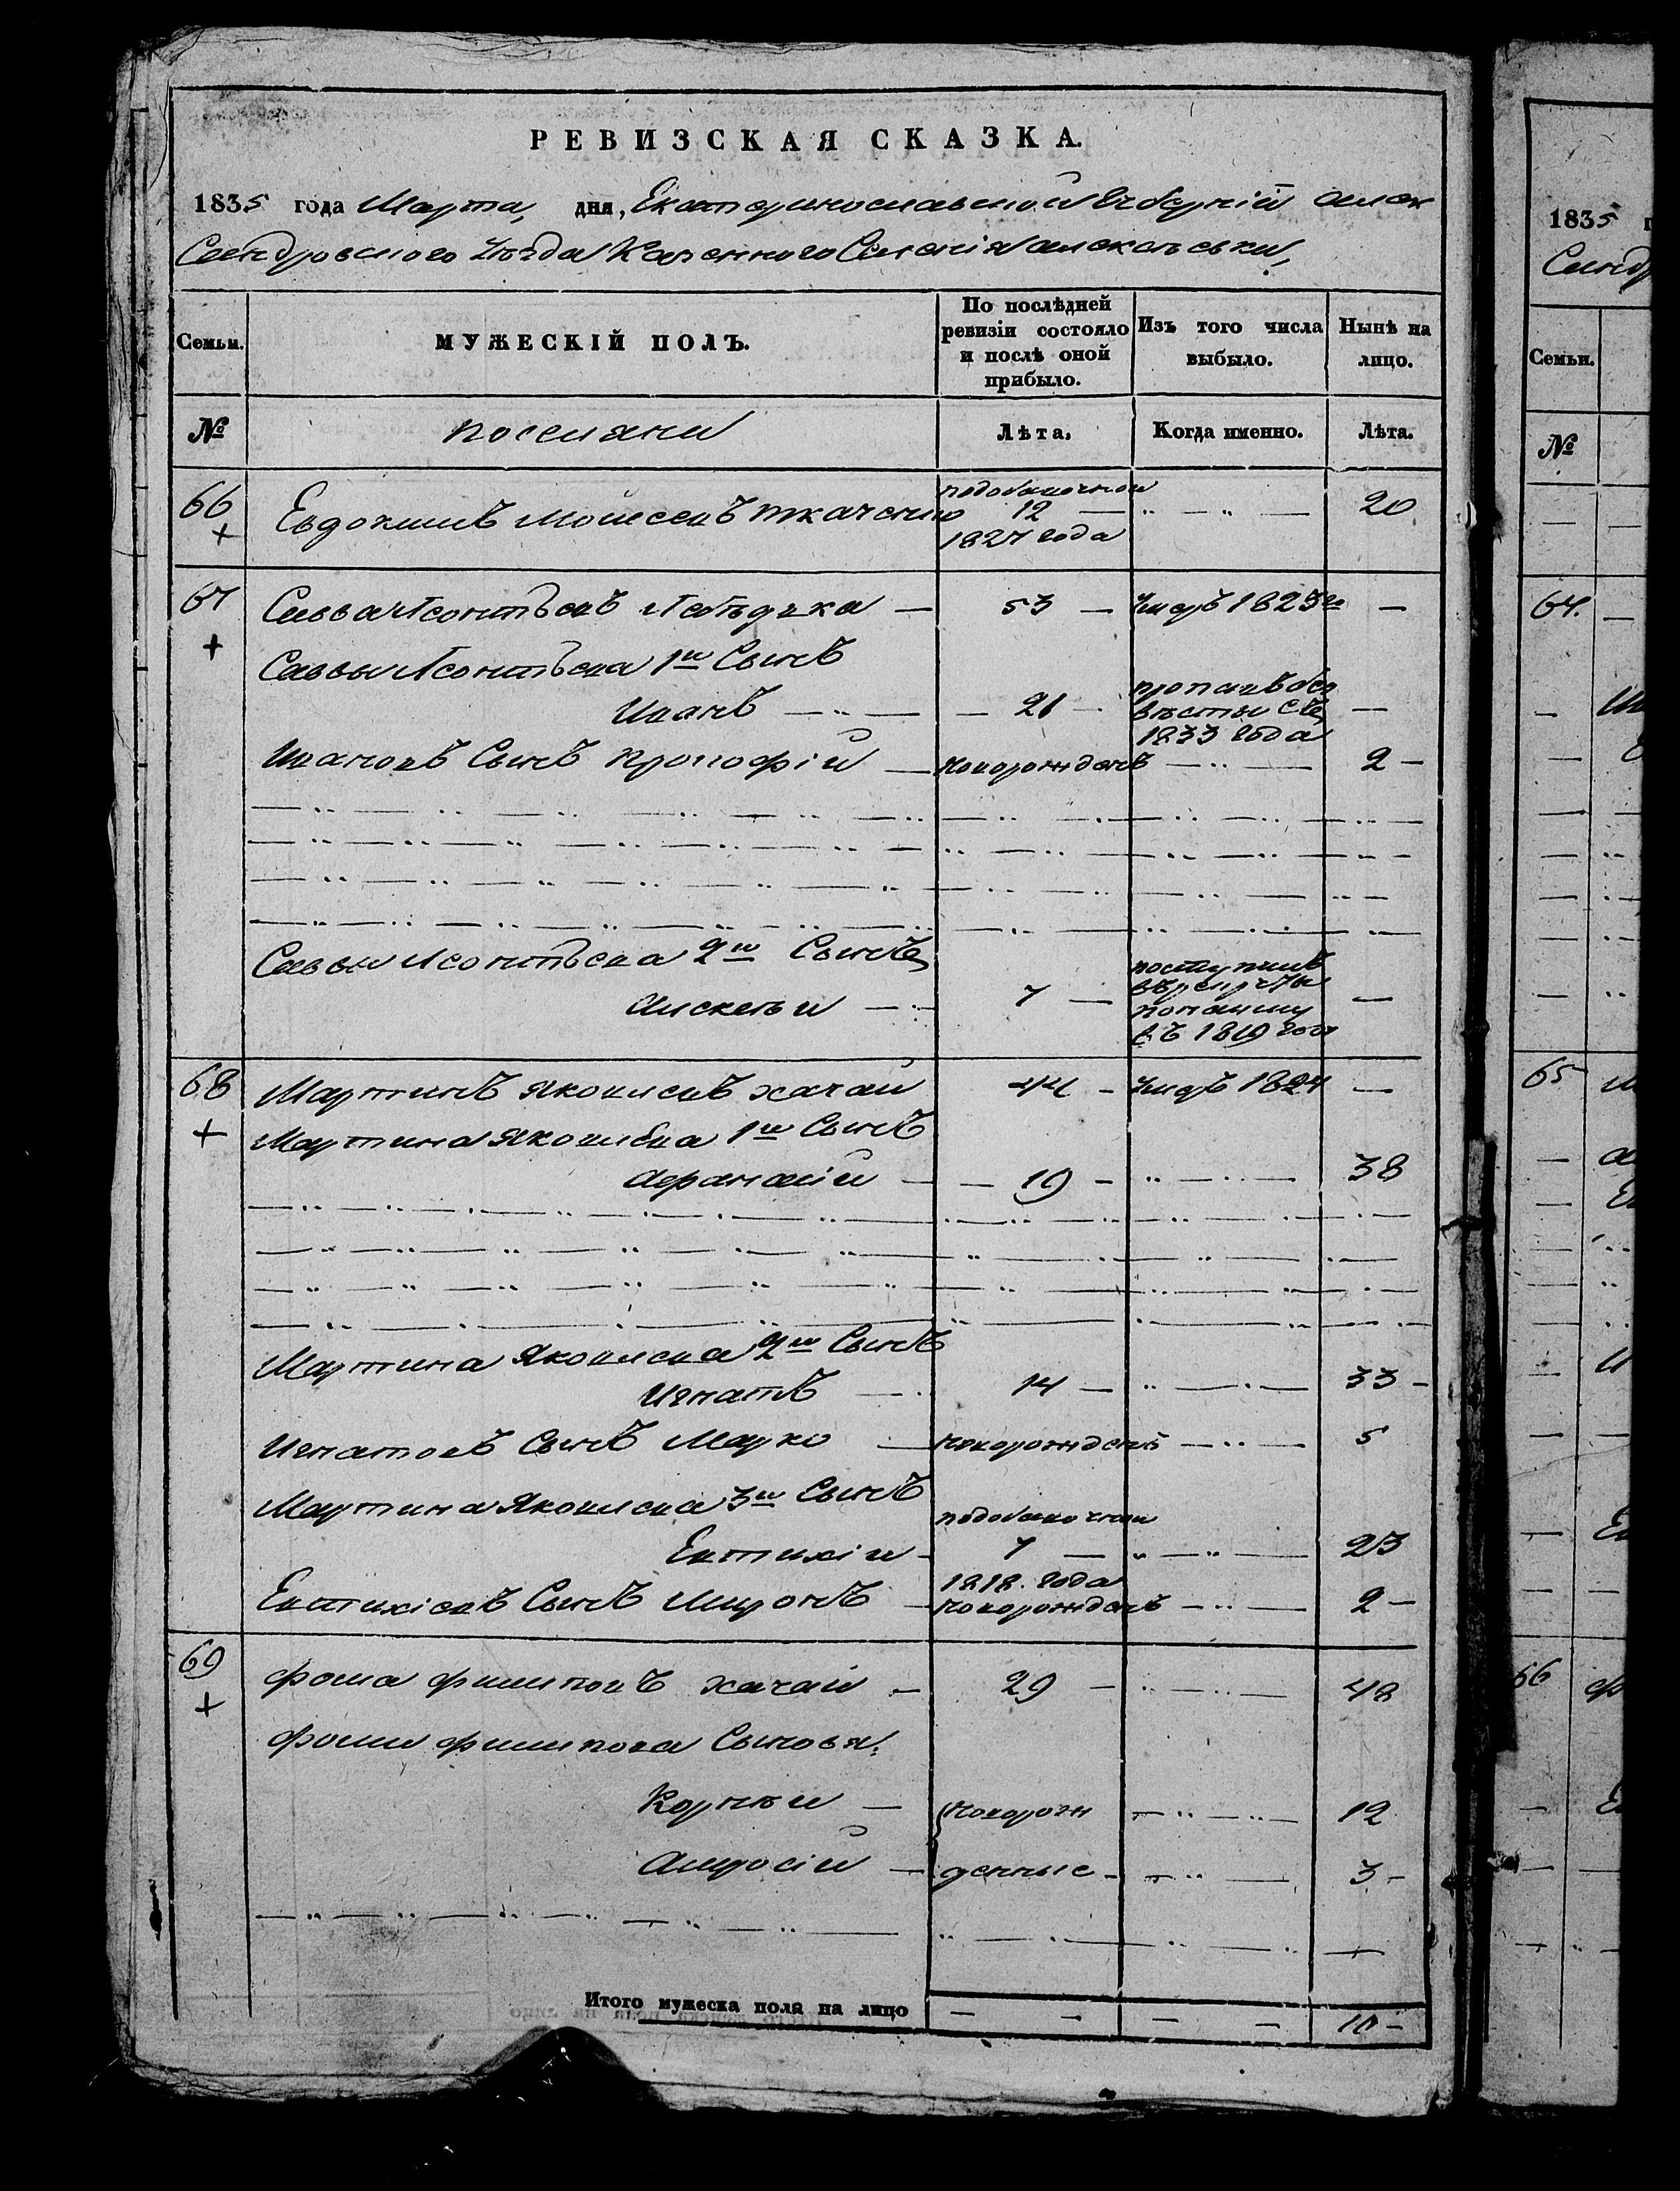 РЕВИЗСКАЯ СКАЗКА.
1835 года Марта, дня, Екатеринославской Губерніи Алек
сандровского Уезда Казенного Селенія
Семьи.
МУЖЕСКІЙ ПОЛЪ.
По послѣдней ревизіи состояло и послѣ оной прибыло.
Изъ того числа выбыло.
Нынѣ на лицо.
№
поселяни
Лѣта.
Когда именно.
Лѣта.
66
Евдокимъ Моисеевъ Ткаченко 12 20
1827 года
67 Савва Леонтьевъ Лебедка 53 умеръ 1823го
Саввы Леонтьева 1й Сынъ
Иванъ 21 пропалъ без
вѣсты съ
1833 года
Ивановъ Сынъ Прокофій новорожденъ 2
Саввы Леонтьева 2й Сынъ
Алексей 7 поступилъ
въ рекруты
въ 1819 году
68 Мартинъ Яковлевъ Хачай 44 умеръ 1824
Мартина Яковлева 1й Сынъ
Афанасий 19 38
Мартина Яковлева 2й Сынъ
Игнатъ 14 33
Игнатовъ Сынъ Марко новорожденъ 5
Мартина Яковлева 3й Сынъ
Евтихій 7 23
1818. года
Евтихіевъ Сынъ Миронъ новорожденъ 2
69 Фома Филиповъ Хачай 29 48
Фомы Филипова Сыновья:
Корней новорож 12
Амросій денные 3
Итого мужеска пола на лицо 10
1835
Семьи.
№
64.
65
66